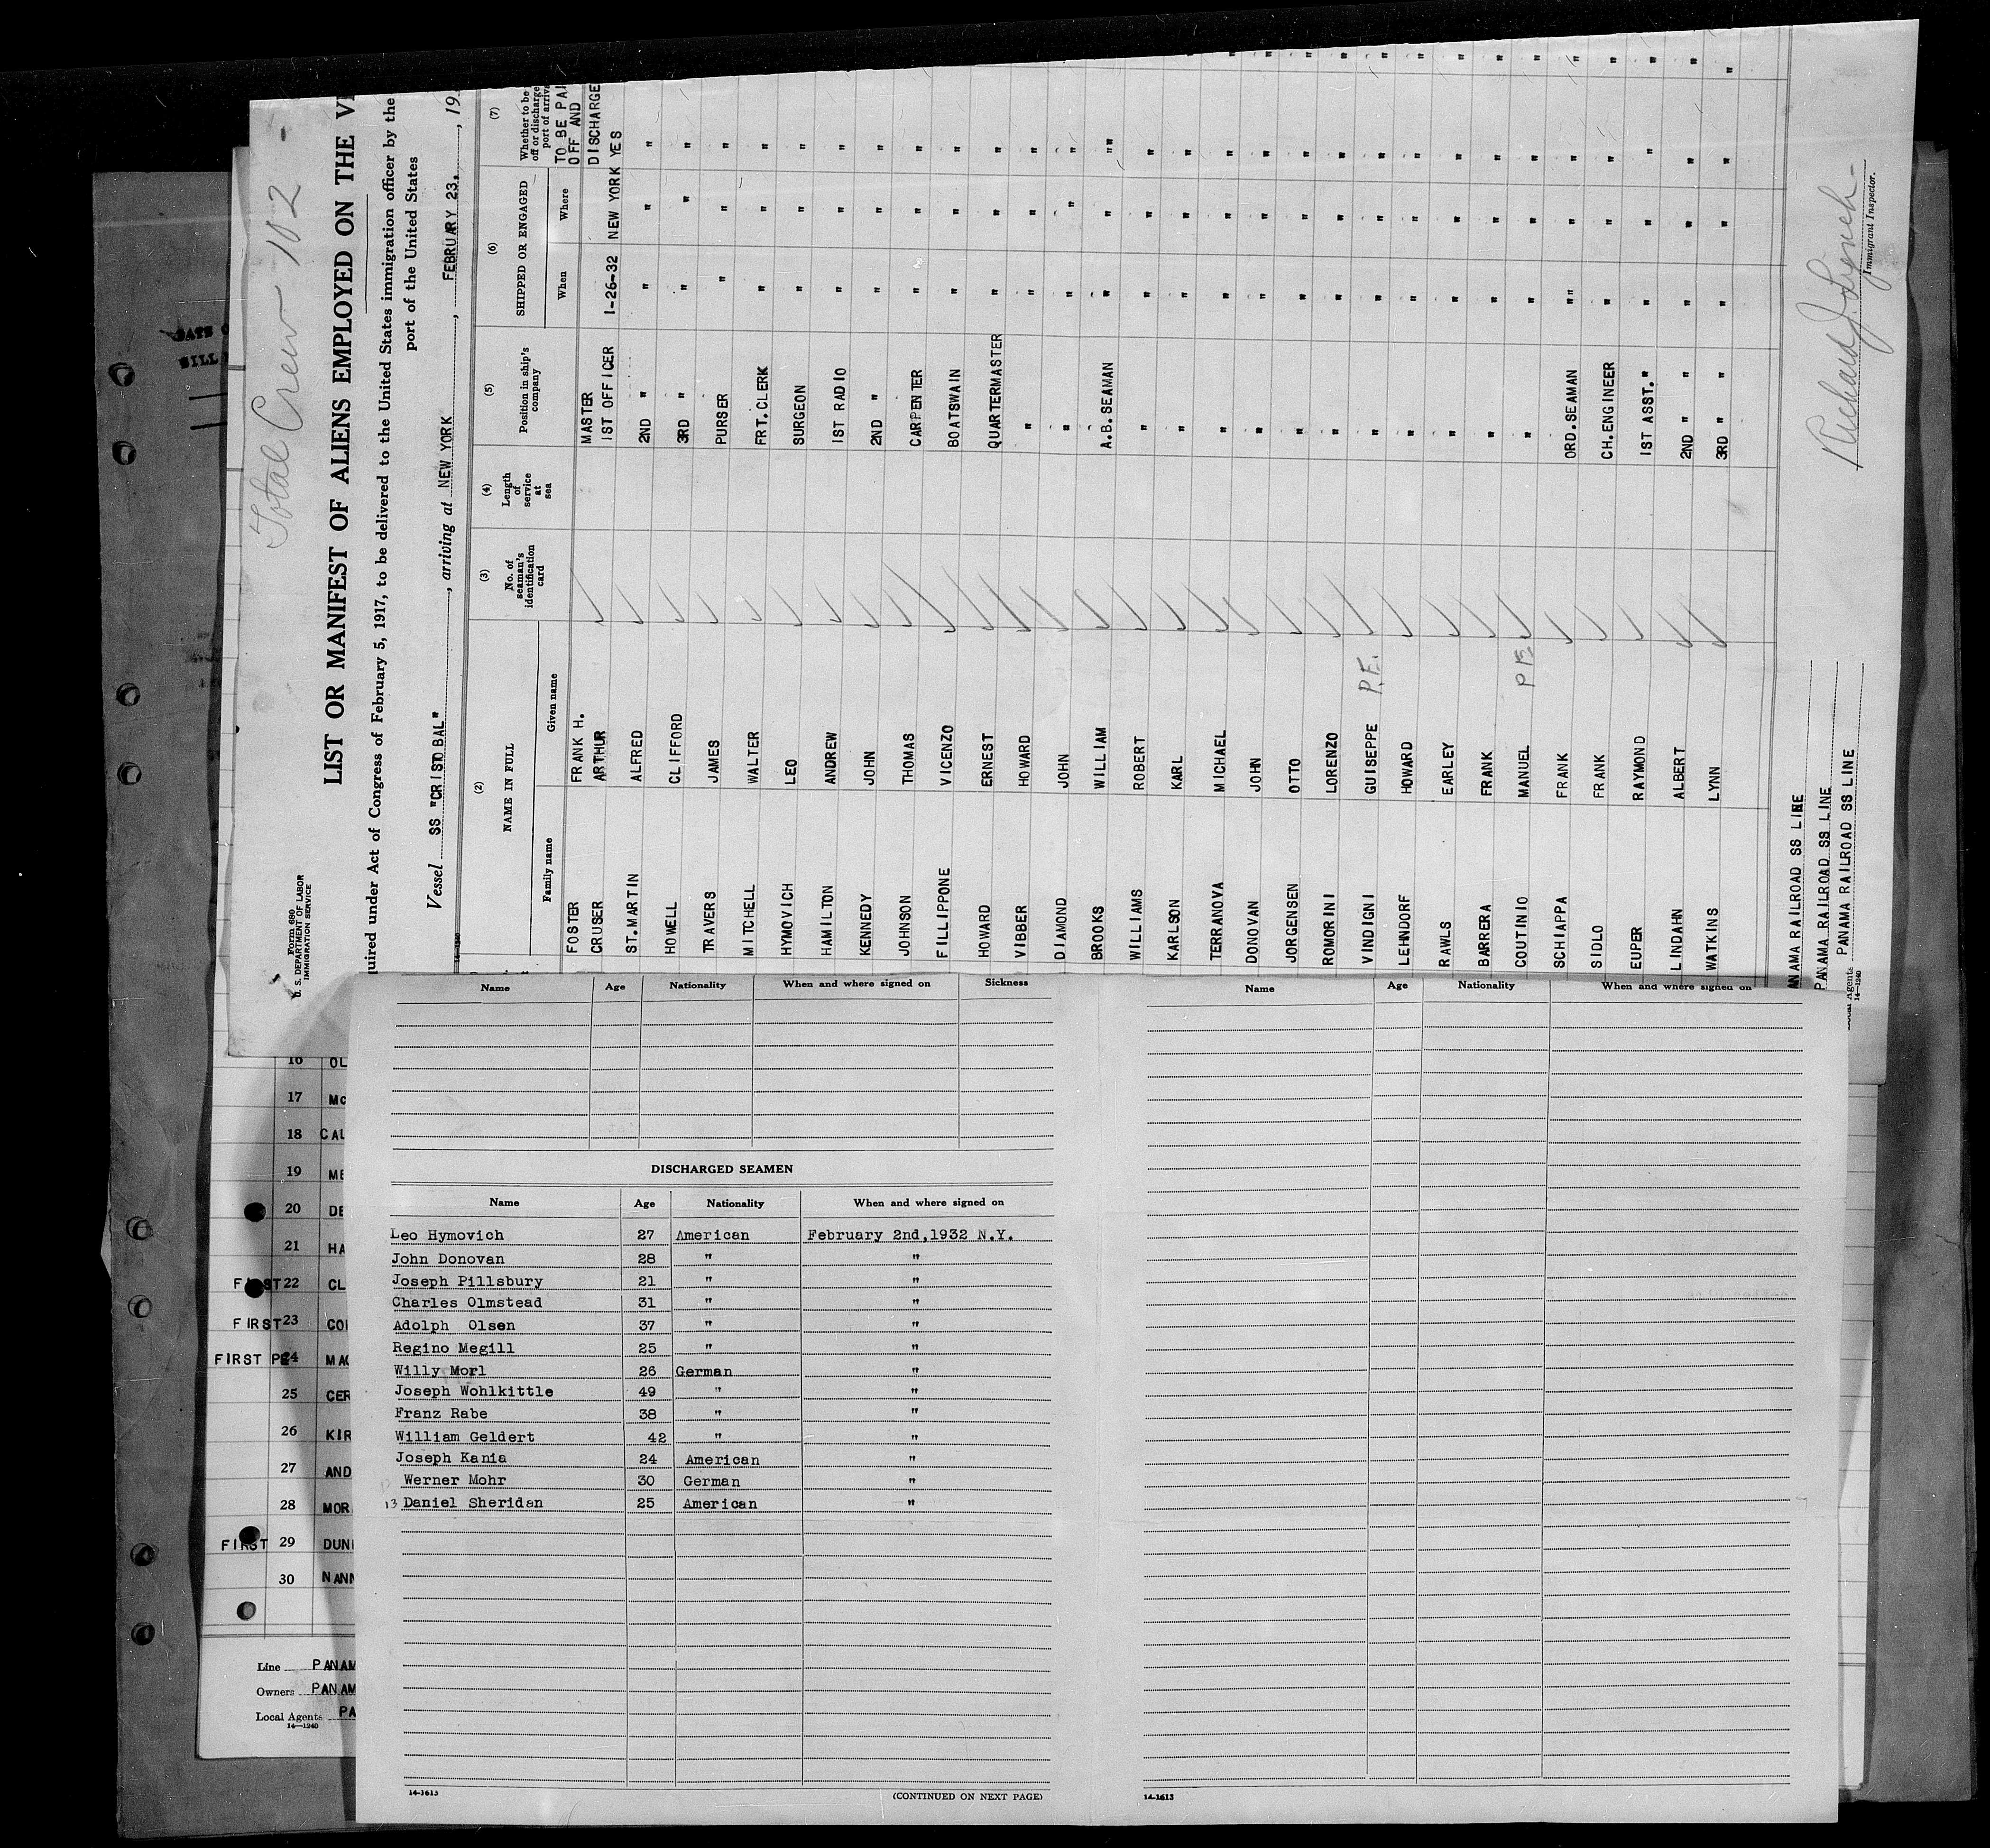 Total Crew 102
Form 680
U. S. DEPARTMENT OF LABOR
IMMIGRATION SERVICE
LIST OR MANIFEST OF ALIENS EMPLOYED ON THE
quired under Act of Congress of February 5, 1917, to be delivered to the United States immigration officer by the
port of the United States
Vessel SS "CRISTOBAL", arriving at NEW YORK, FEBRUARY 23, 19
(2) (3) (4) (5) (6) (7)
NAME IN FULL No. of seaman's identification card Length of service at sea Position in ship's company SHIPPED OR ENGAGED Whether to be
off or discharge
port of arriva
Family name Given name When Where TO BE PAI
OFF AND
DISCHARGE
FOSTER FRANK H. MASTER
CRUSER ARTHUR 1ST OFFICER 1-26-32 NEW YORK YES
ST.MARTIN ALFRED 2ND " " " "
HOWELL CLIFFORD 3RD " " " "
TRAVERS JAMES PURSER " " "
MITCHELL WALTER FRT.CLERK " " "
HYMOVICH LEO SURGEON " " "
HAMILTON ANDREW 1ST RADIO " " "
KENNEDY JOHN 2ND " " " "
JOHNSON THOMAS CARPENTER " " "
FILLIPPONE VICENZO BOATSWAIN " " "
HOWARD ERNEST QUARTERMASTER " " "
VIBBER HOWARD " " " "
DIAMOND JOHN " " " "
BROOKS WILLIAM A.B.SEAMAN " " "
WILLIAMS ROBERT " " " "
KARLSON KARL " " " "
TERRANOVA MICHAEL " " " "
DONOVAN JOHN " " " "
JORGENSEN OTTO " " " "
ROMORINI LORENZO " " " "
VINDIGNI GUISEPPE P.E. " " " "
LEHNDORF HOWARD " " " "
RAWLS EARLEY " " " "
BARRERA FRANK " " " "
COUTINIO MANUEL P.E. " " " "
SCHIAPPA FRANK ORD.SEAMAN " " "
SIDLO FRANK CH.ENGINEER " " "
EUPER RAYMOND 1ST ASST." " " "
LINDAHN ALBERT 2ND " " " " "
WATKINS LYNN 3RD " " " " "
ANAMA RAILROAD SS LINE
PANAMA RAILROAD SS LINE
Local Agents PANAMA RAILROAD SS LINE
14-1240
Richard J. Lynch
Immigrant Inspector.
16 OL
17 Mc
18 CAL
19 ME
20 DE
21 HA
22 CL
FIRST 23 COL
FIRST PE 24 MAC
25 CER
26 KIR
27 AND
28 MOR
29 DUN
30 NANN
Line PANAM
Owners PANAM
Local Agents PA
14-1240
Name Age Nationality When and where signed on Sickness
DISCHARGED SEAMEN
Name Age Nationality When and where signed on
Leo Hymovich 27 American February 2nd,1932 N.Y.
John Donovan 28 " "
Joseph Pillsbury 21 " "
Charles Olmstead 31 " "
Adolph Olsen 37 " "
Regino Megill 25 " "
Willy Morl 26 German "
Joseph Wohlkittle 49 " "
Franz Rabe 38 " "
William Geldert 42 " "
Joseph Kania 24 American "
Werner Mohr 30 German "
13 Daniel Sheridan 25 American "
14-1613 (CONTINUED ON NEXT PAGE)
Name Age Nationality When and where signed on
14-1613